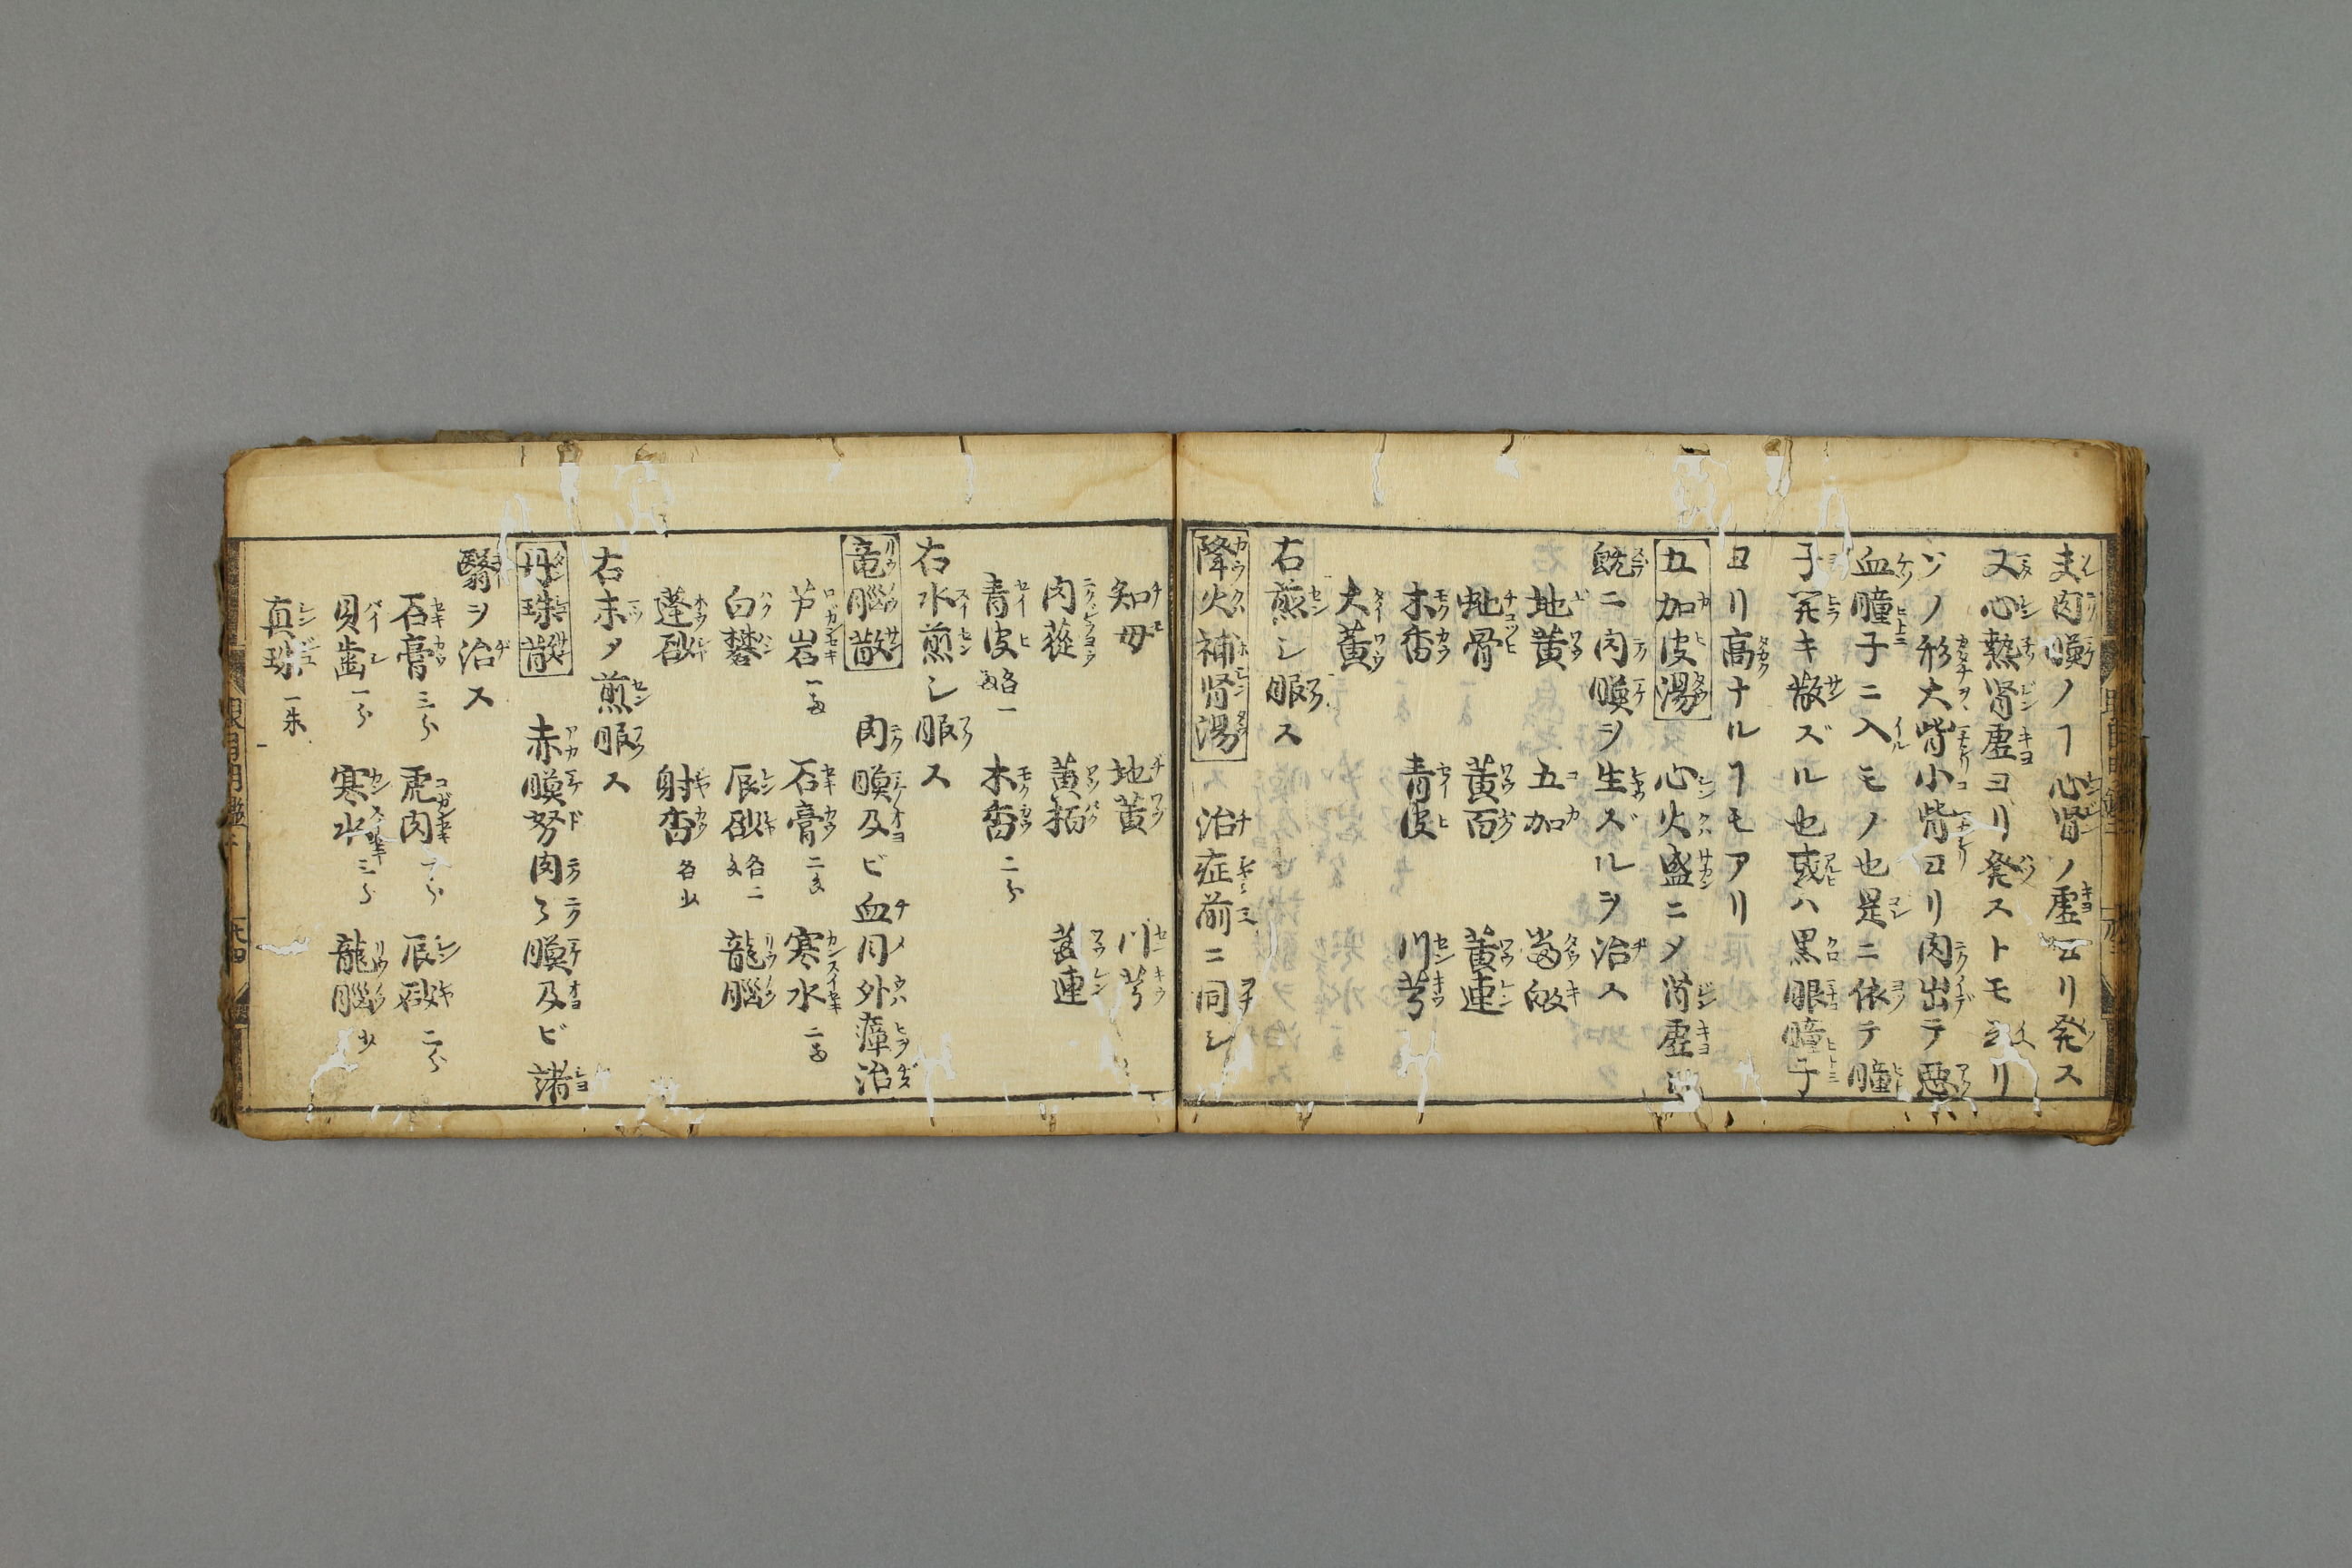 夫肉瞙ノヿ心腎ノ虚ヨリ発ス
又心熱腎虚ヨリ発ストモ云リ
ソノ形大眥小眥ヨリ肉出テ悪
血瞳子ニ入モノ也是ニ依テ瞳
子開キ散ズル也或ハ黒眼瞳子
ヨリ高ナルヿモアリ
五加皮湯 心火盛ニメ腎虚
既ニ肉瞙ヲ生ズルヲ治ス
地黄 五加 當皈
地骨 黄百 黄連
木香 青皮 川芎
大黄
右煎シ服ス
降火補腎湯 治症前ニ同シ
知母 地黄 川芎
肉蓯 黄栢 黄連
青皮 各一匁 木香 二分
右水煎シ服ス
竜脳散 肉瞙及ビ血目外瘴治
芦岩 一匁 石膏 二匁 寒水 二匁
白礬 辰砂 各二匁 龍脳
蓬砂 射香 各少
右末メ煎服ス
丹珠散 赤瞙努肉々瞙及ビ諸
翳ヲ治ス
石膏 三分 虎肉 一分 辰砂 二分
貝歯 一分 寒水 三分 龍脳 少
真珠 一朱